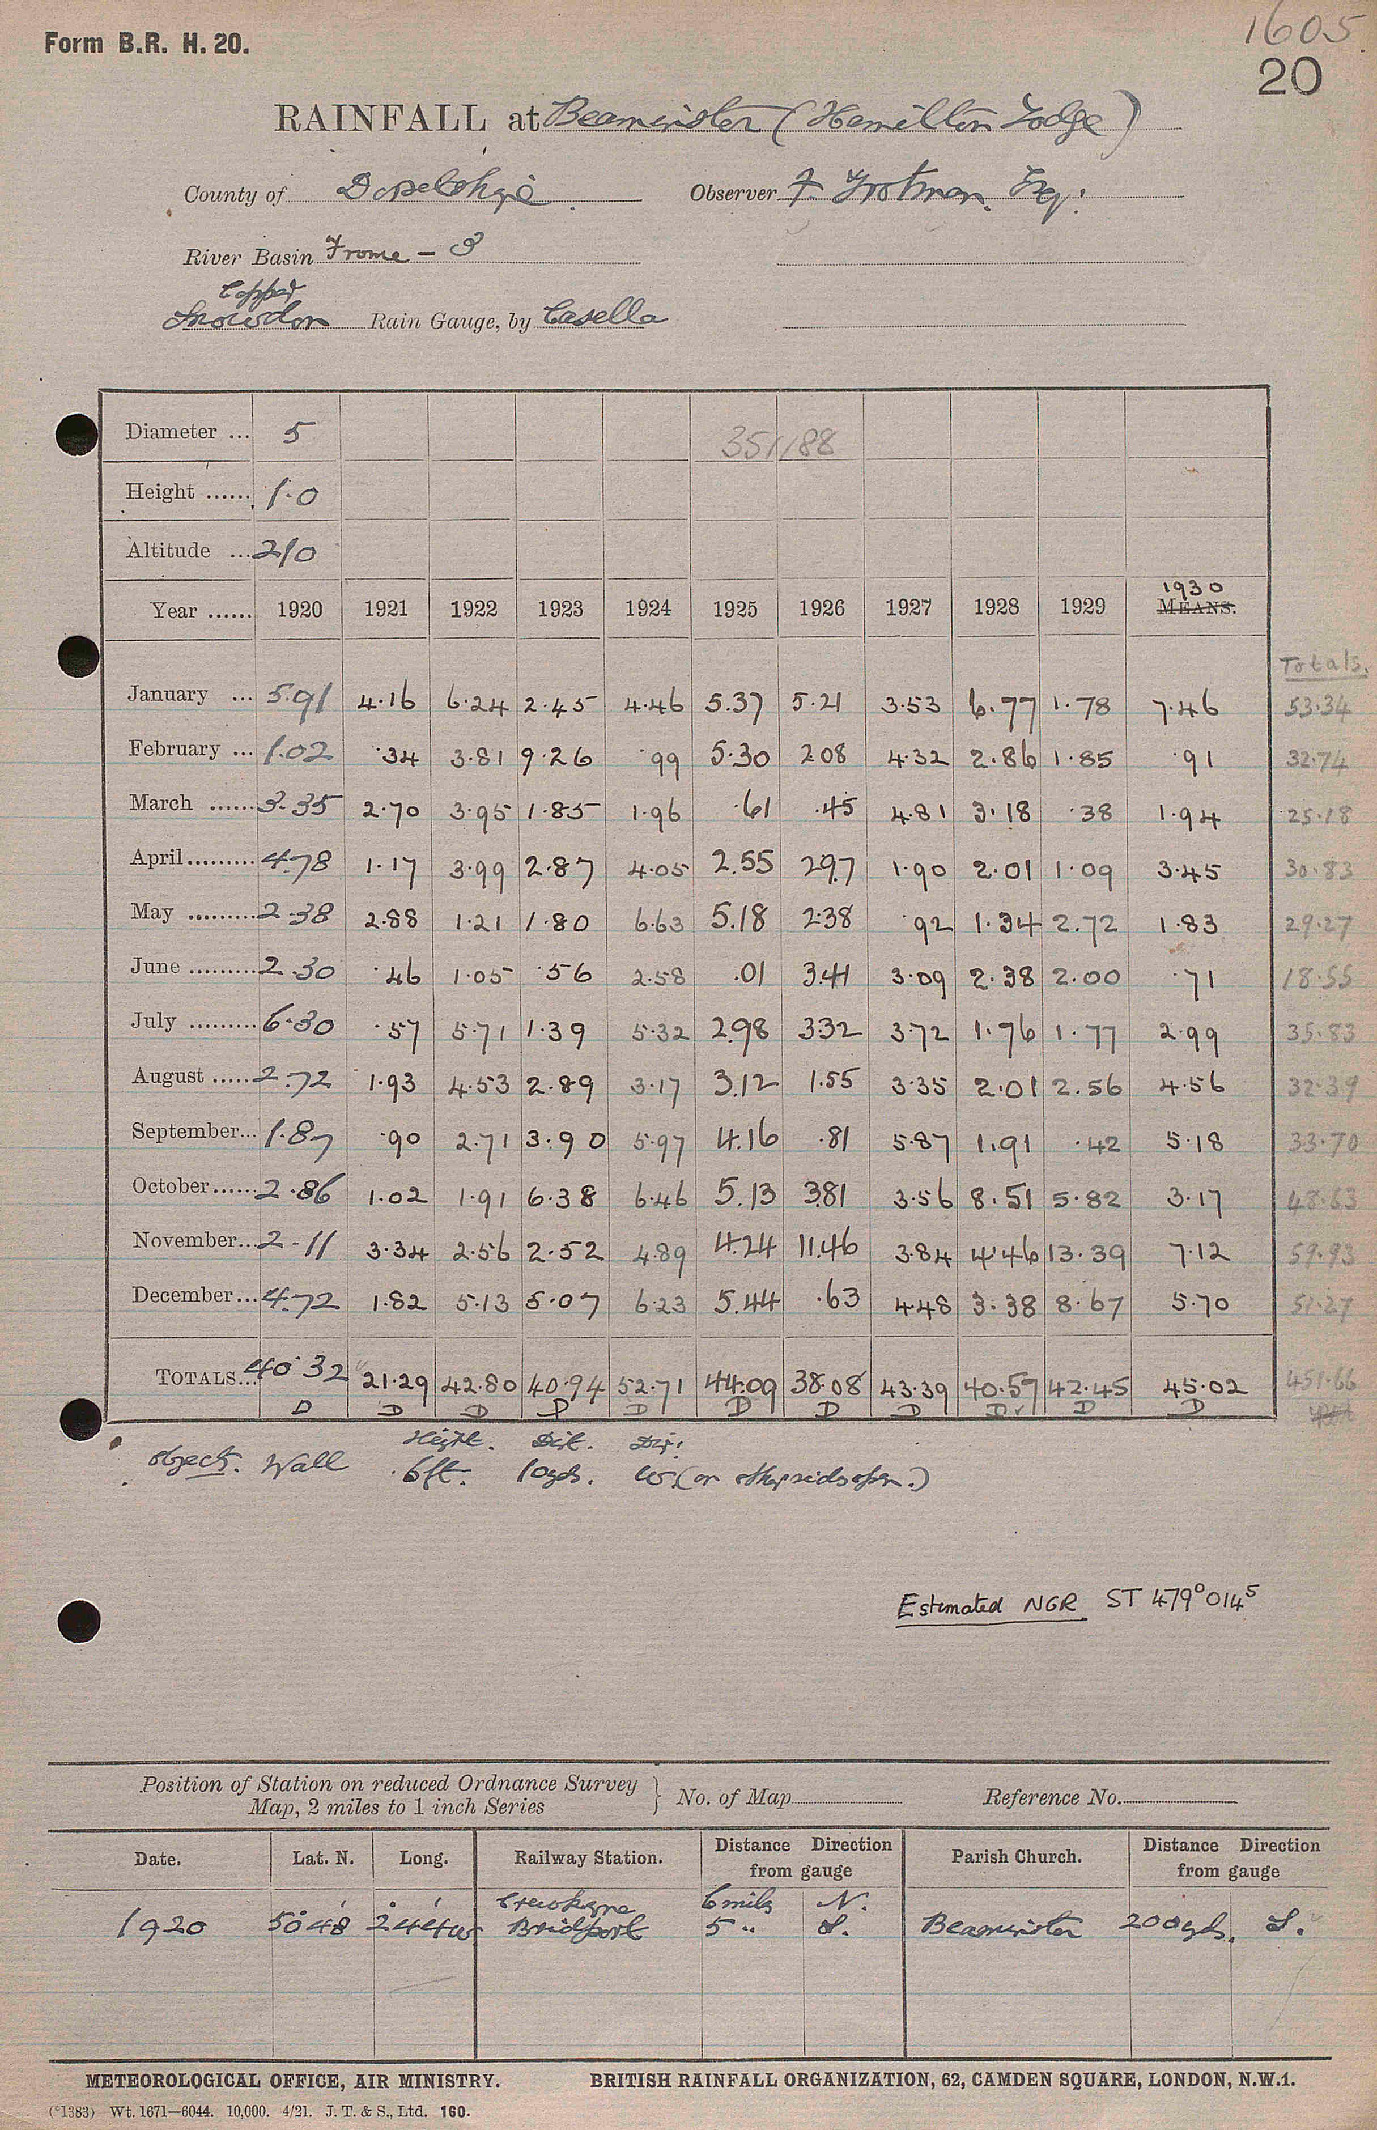 1605
Form B.R. H. 20.
20
RAINFALL at Beaminster (Hamilton Lodge)
County of Dorsetshire Observer F Trotman. Esq:
River Basin Frome - 3
Copper
Snowdon Rain Gauge, by Casella
Diameter ... 5 351/88
Height ...... 1.0
Altitude ... 210
1930
Year ...... 1920 1921 1922 1923 1924 1925 1926 1927 1928 1929 MEANS.
Totals.
January ... 5.91 4.16 6.24 2.45 4.46 5.37 5.21 3.53 6.77 1.78 7.46 53.34
February ... 1.02 .34 3.81 9.26 .99 5.30 2.08 4.32 2.86 1.85 .91 32.74
March ...... 3.35 2.70 3.95 1.85 1.96 .61 .45 4.81 3.18 .38 1.94 25.18
April......... 4.78 1.17 3.99 2.87 4.05 2.55 2.97 1.90 2.01 1.09 3.45 30.83
May ......... 2.38 2.88 1.21 1.80 6.63 5.18 2.38 .92 1.34 2.72 1.83 29.27
June ......... 2.30 .46 1.05 .56 2.58 .01 3.41 3.09 2.38 2.00 .71 18.55
July ......... 6.30 .57 5.71 1.39 5.32 2.98 3.32 3.72 1.76 1.77 2.99 35.83
August ..... 2.72 1.93 4.53 2.89 3.17 3.12 1.55 3.35 2.01 2.56 4.56 32.39
September... 1.87 .90 2.71 3.90 5.97 4.16 .81 5.87 1.91 .42 5.18 33.70
October...... 2.86 1.02 1.91 6.38 6.46 5.13 3.81 3.56 8.51 5.82 3.17 48.63
November... 2.11 3.34 2.56 2.52 4.89 4.24 11.46 3.84 4.46 13.39 7.12 59.93
December... 4.72 1.82 5.13 5.07 6.23 5.44 .63 4.48 3.38 8.67 5.70 51.27
TOTALS... 40.32 21.29 42.80 40.94 52.71 44.09 38.08 43.39 40.57 42.45 45.02 451.66
D D D D D D D D D D D
Height. Dist. Dir:
Object. Wall 6ft. 10yds. W. (on other sides open.)
Estimated NGR ST 479⁰014⁵
Position of Station on reduced Ordnance Survey
Map, 2 miles to 1 inch Series } No. of Map Reference No.
Date. Lat. N. Long. Railway Station. Distance Direction from gauge Parish Church. Distance Direction from gauge
Crewkerne 6 miles N.
1920 50°48' 2°44'W Bridport 5 " S. Beaminster 200yds. S.
METEOROLOGICAL OFFICE, AIR MINISTRY. BRITISH RAINFALL ORGANIZATION, 62, CAMDEN SQUARE, LONDON, N.W.1.
(*1383) Wt. 1671—6044. 10,000. 4/21. J. T. & S., Ltd. 160.